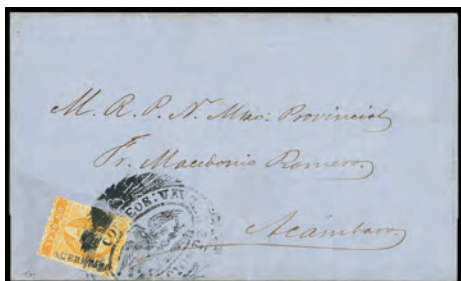 M. R. P. N. Mtro. Provincial
Fr. Macedonio Romero
Acámbaro
QUERETARO